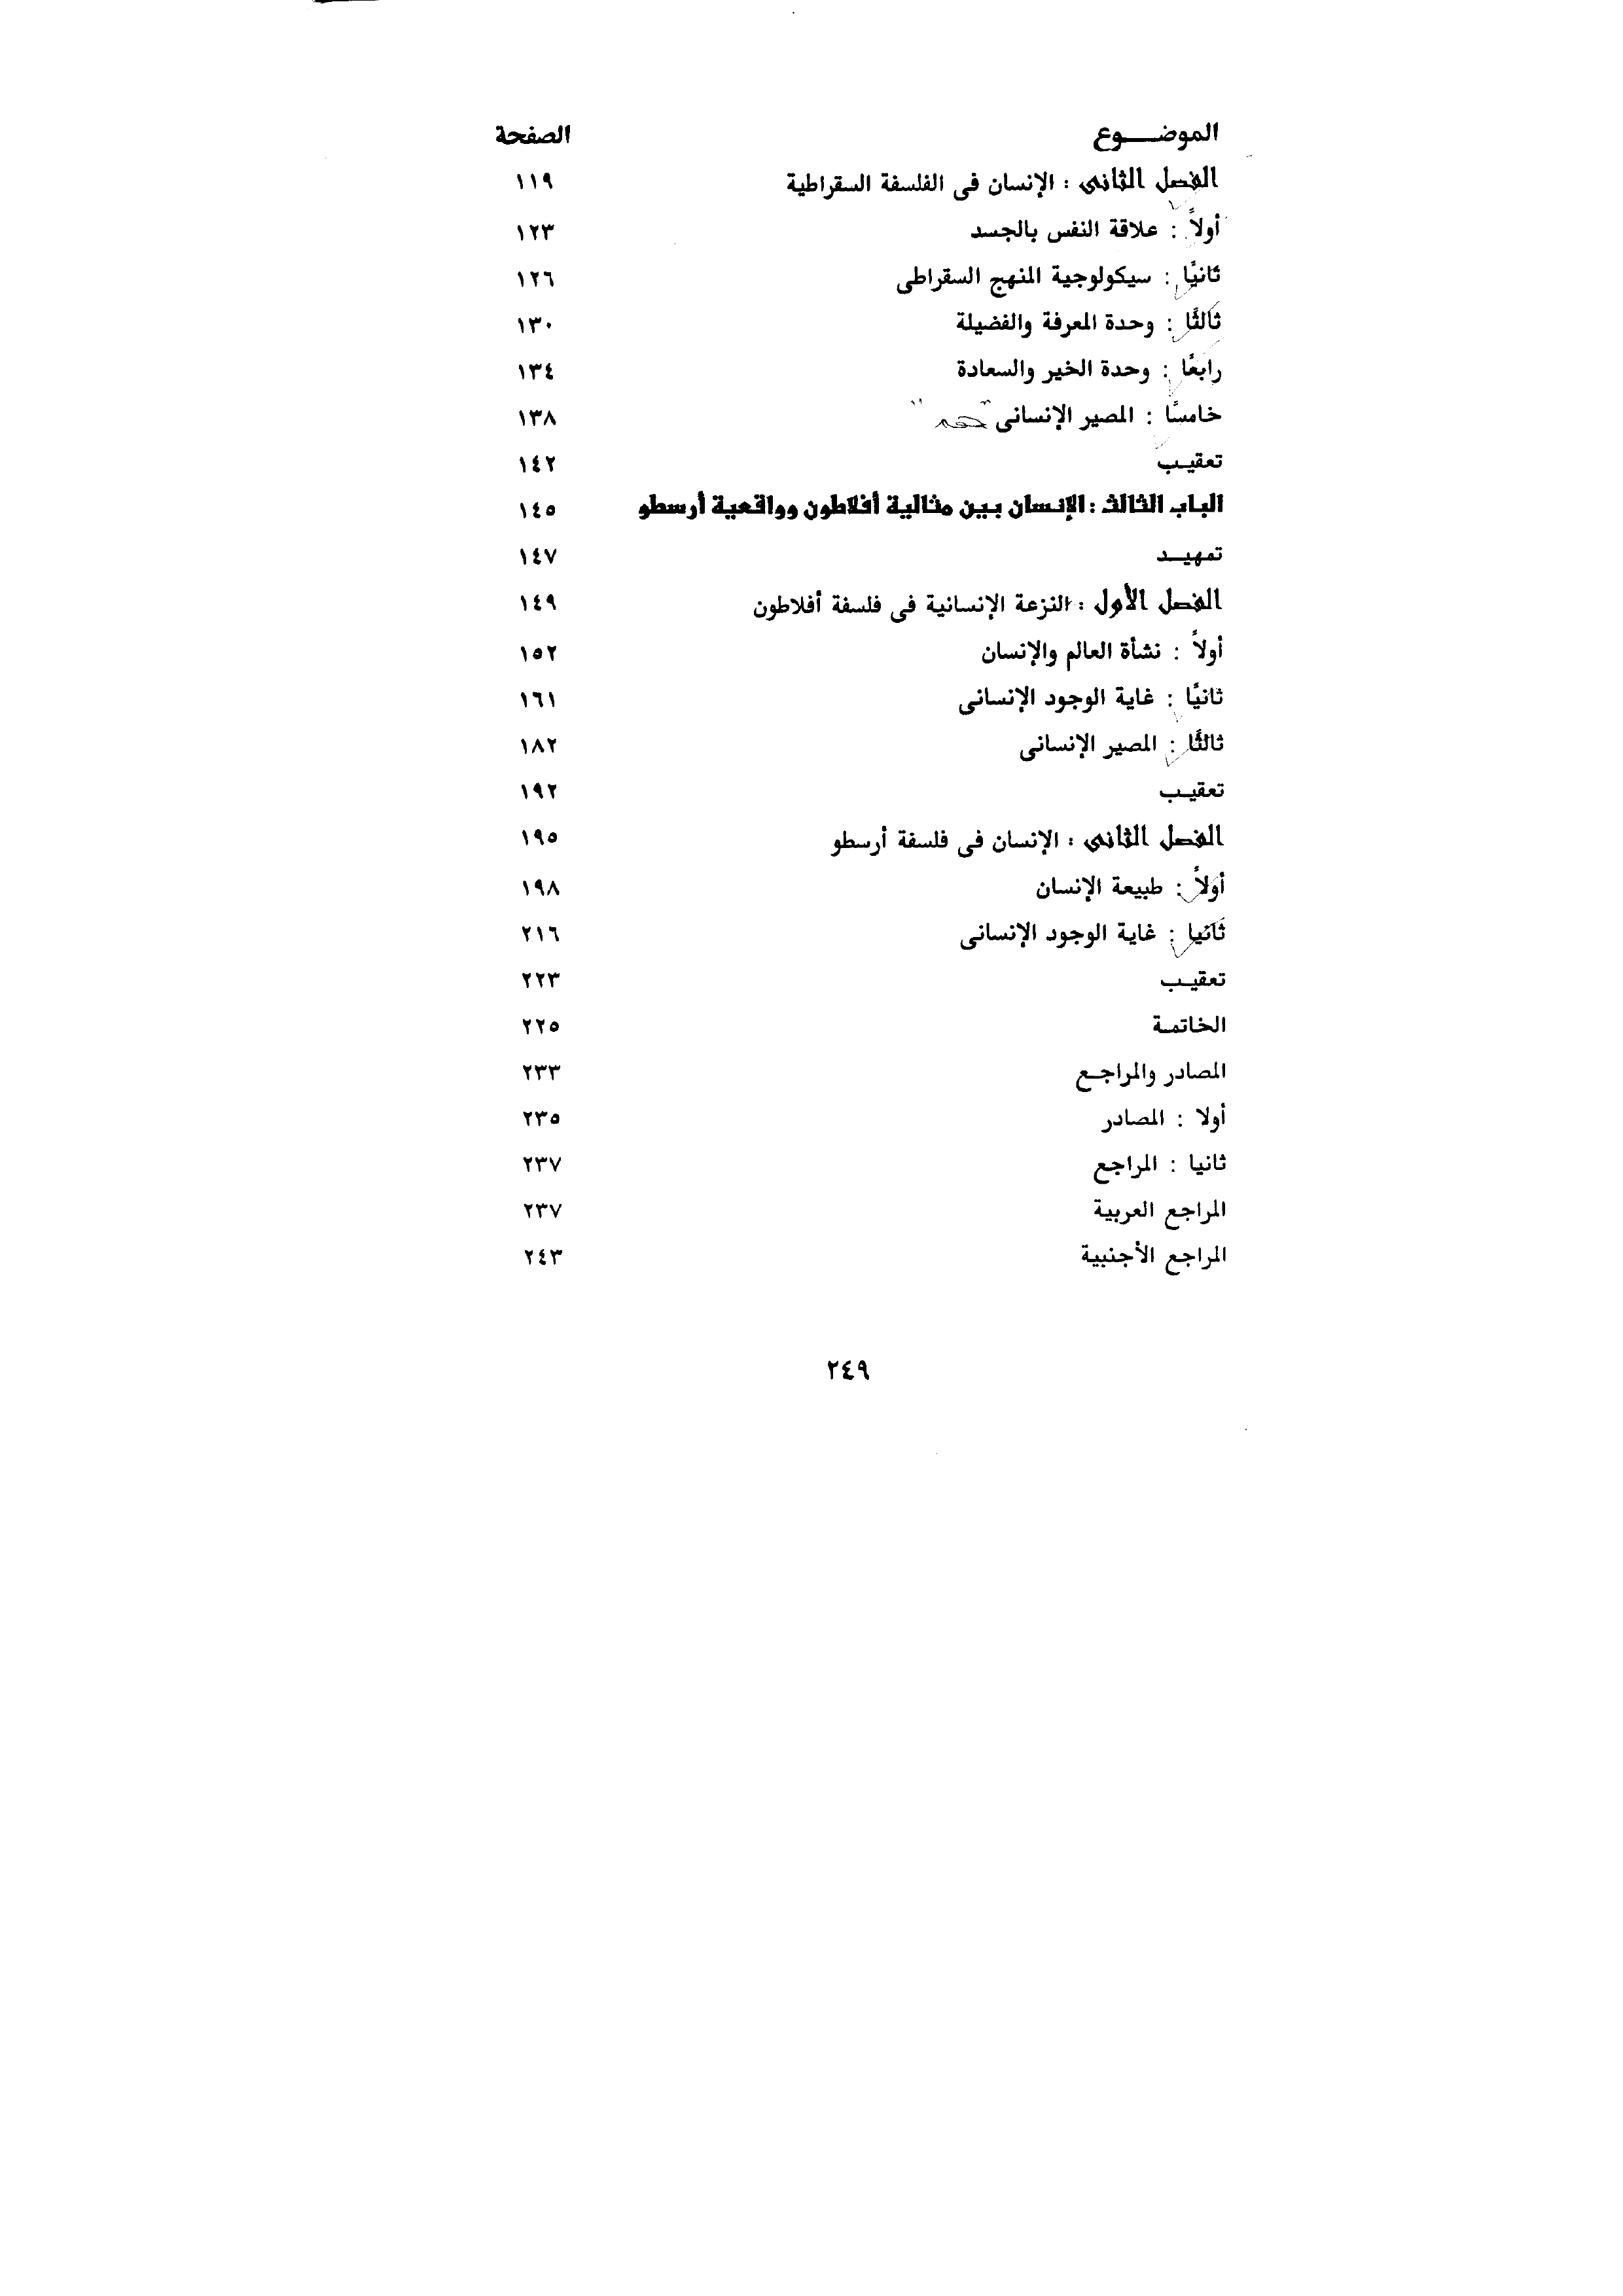 الموضـــوع الصفحة
الفصل الثانى : الإنسان فى الفلسفة السقراطية ١١٩
أولاً : علاقة النفس بالجسد ١٢٣
ثانيًا : سيكولوجية المنهج السقراطى ١٢٦
ثالثًا : وحدة المعرفة والفضيلة ١٣٠
رابعًا : وحدة الخير والسعادة ١٣٤
خامسًا : المصير الإنسانى ١٣٨
تعقيـب ١٤٢
الباب الثالث : الإنسان بين مثالية أفلاطون وواقعية أرسطو ١٤٥
تمهيــد ١٤٧
الفصل الأول : النزعة الإنسانية فى فلسفة أفلاطون ١٤٩
أولاً : نشأة العالم والإنسان ١٥٢
ثانيًا : غاية الوجود الإنسانى ١٦١
ثالثًا : المصير الإنسانى ١٨٢
تعقيـب ١٩٢
الفصل الثانى : الإنسان فى فلسفة أرسطو ١٩٥
أولاً : طبيعة الإنسان ١٩٨
ثانيا : غاية الوجود الإنسانى ٢١٦
تعقيـب ٢٢٣
الخاتمـة ٢٢٥
المصادر والمراجـع ٢٣٣
أولا : المصادر ٢٣٥
ثانيا : المراجع ٢٣٧
المراجع العربية ٢٣٧
المراجع الأجنبية ٢٤٣
٢٤٩